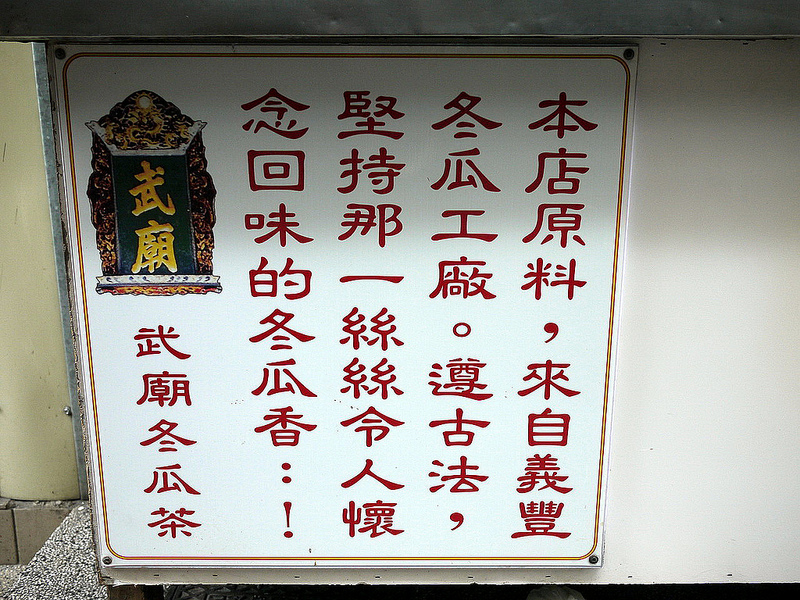 本店原料，來自義豐
冬瓜工廠。遵古法，
堅持那一絲絲令人懷
念回味的冬瓜香：！
武廟
武廟冬瓜茶